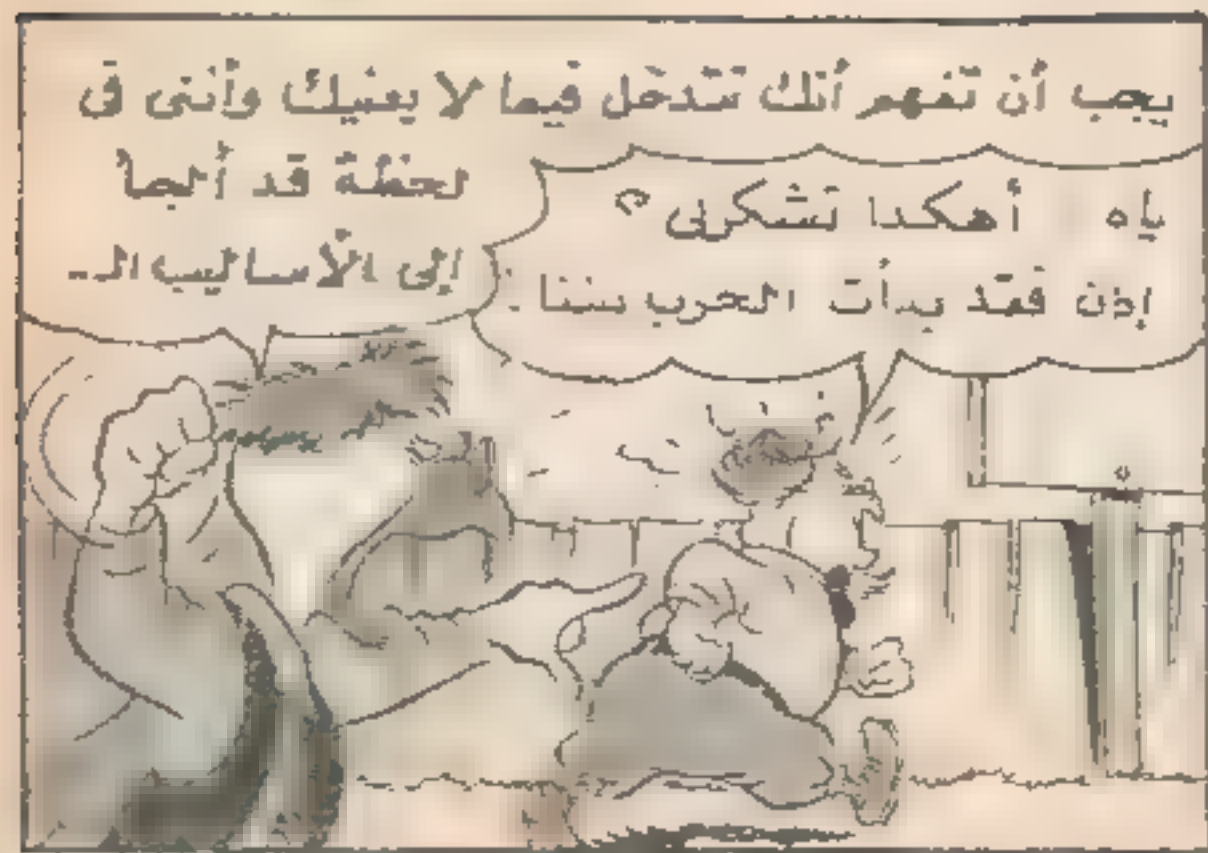 يجب أن تفهم أنك تتدخل فيما لا يعنيك وأننى فى
لحظة قد ألجأ
إلى الأساليب الـ
ياه أهكذا تشكرنى ؟
إذن فقد بدأت الحرب بيننا .